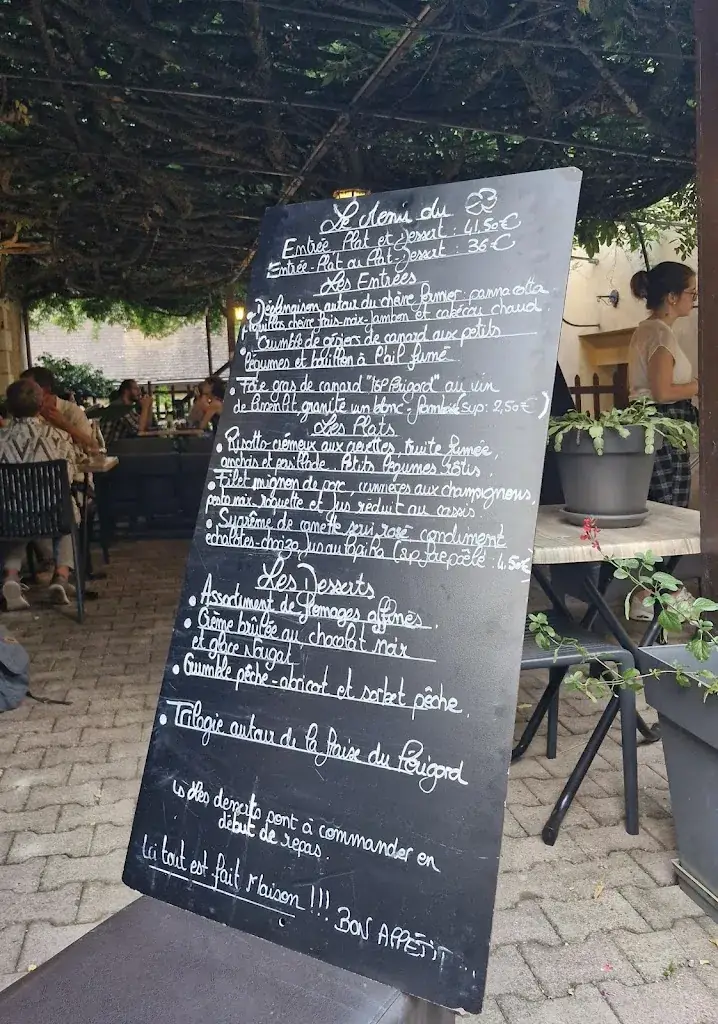 Le Menu du
Entrée, Plat et Dessert : 41.50€
Entrée-Plat ou Plat-Dessert : 36€
Les Entrées
• Déclinaison autour du chèvre fermier : pannacotta,
chèvre frais-noix-jambon et cabécou chaud.
• Crumble de gésiers de canard aux petits
légumes et bouillon à l'ail fumé
• Foie gras de canard "IGP Périgord" au vin
de , granité vin blanc - framboise (sup: 2,50€)
Les Plats
• Risotto crémeux aux crevettes, truite fumée,
anchois et persillade. Petits légumes rôtis.
• Filet mignon de porc, aux champignons,
pesto noix roquette et jus réduit au cassis
• Suprême de canette servi rosé condiment
echalotes-chorizo jus au (sup foie poêlé : 4.50€)
Les Desserts
• Assortiment de fromages affinés.
• Crème brûlée au chocolat noir
et glace nougat
• Crumble pêche-abricot et sorbet pêche.
• Trilogie autour de la fraise du Périgord
desserts sont à commander en
début de repas.
Ici tout est fait Maison !!!
BON APPÉTIT...